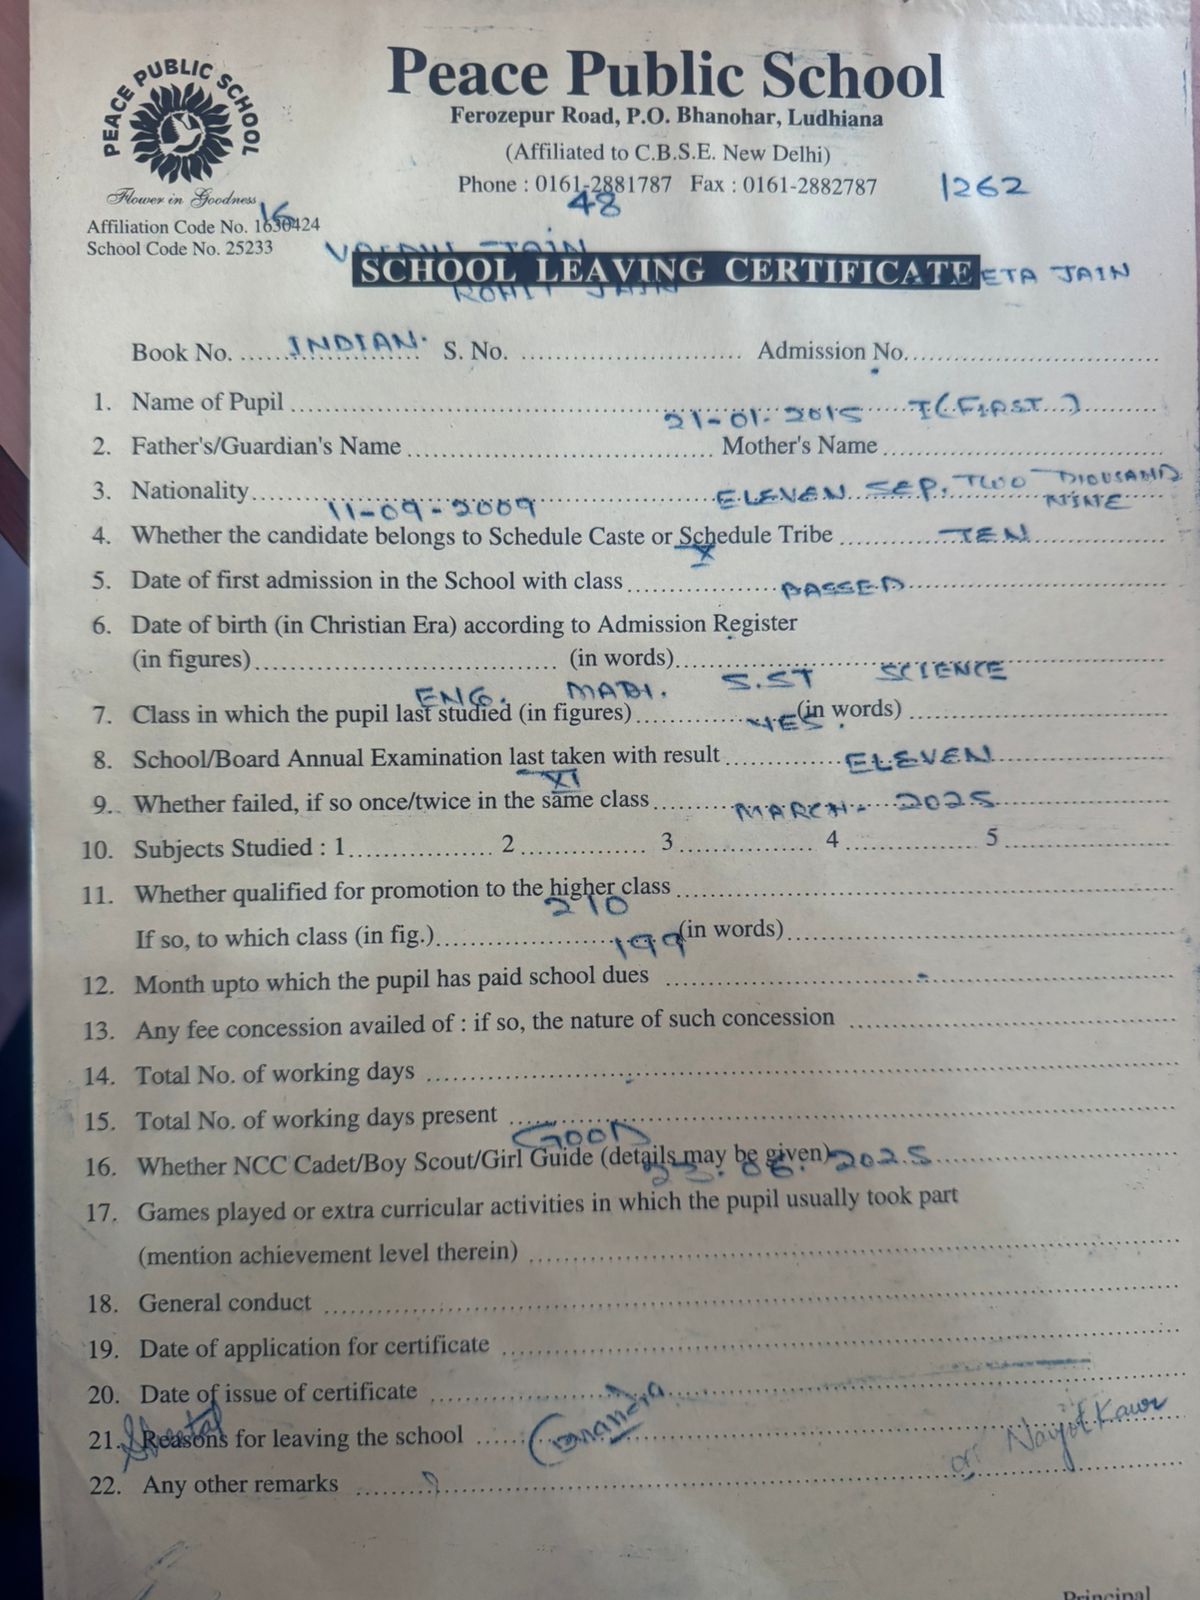 PEACE PUBLIC SCHOOL
Flower in Goodness
Peace Public School
Ferozepur Road, P.O. Bhanohar, Ludhiana
(Affiliated to C.B.S.E. New Delhi)
Phone : 0161-2881787 Fax : 0161-2882787 1262
16 48
Affiliation Code No. 1630424
School Code No. 25233
JAIN
SCHOOL LEAVING CERTIFICATE ETA JAIN
ROHIT JAIN
Book No. INDIAN. S. No. Admission No.
1. Name of Pupil
21-01-2015 I (FIRST)
2. Father's/Guardian's Name Mother's Name
3. Nationality ELEVEN SEP. TWO THOUSAND NINE
11-09-2009
4. Whether the candidate belongs to Schedule Caste or Schedule Tribe TEN
X
5. Date of first admission in the School with class PASSED
6. Date of birth (in Christian Era) according to Admission Register
(in figures) (in words)
ENG. S.ST SCIENCE
7. Class in which the pupil last studied (in figures) YES (in words)
8. School/Board Annual Examination last taken with result ELEVEN
XI
9. Whether failed, if so once/twice in the same class MARCH- 2025
10. Subjects Studied : 1 2 3 4 5
11. Whether qualified for promotion to the higher class
210
If so, to which class (in fig.) 199 (in words)
12. Month upto which the pupil has paid school dues
13. Any fee concession availed of : if so, the nature of such concession
14. Total No. of working days
15. Total No. of working days present
GOOD
16. Whether NCC Cadet/Boy Scout/Girl Guide (details may be given)
2025
17. Games played or extra curricular activities in which the pupil usually took part
(mention achievement level therein)
18. General conduct
19. Date of application for certificate
20. Date of issue of certificate
21. Reasons for leaving the school
Navjot Kaur
22. Any other remarks
Principal